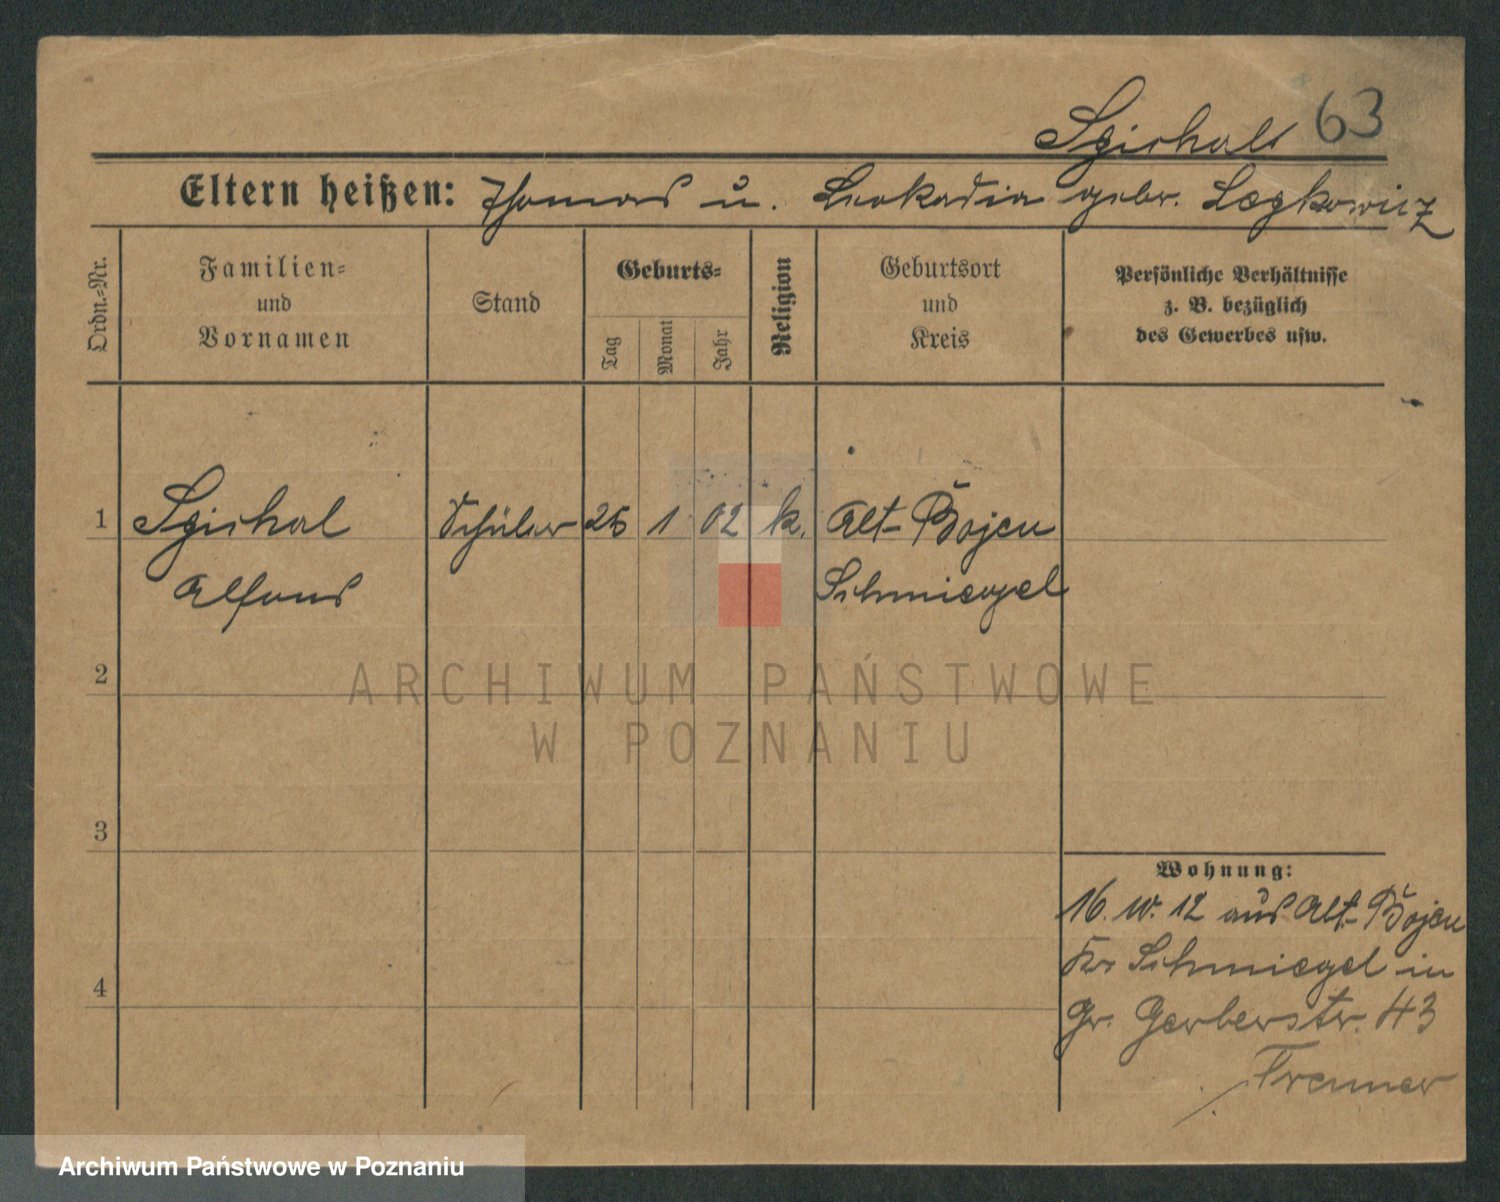 63
Eltern heißen: Thomas u. Leokadia gebr.
Ordn.=Nr.
Familien=
und
Vornamen
Stand
Geburts=
Tag
Monat
Jahr
Religion
Geburtsort
und
Kreis
Persönliche Verhältnisse
z. B. bezüglich
des Gewerbes usw.
1 Schüler 1 02 k. Alt-Bojen
Alfons Schmiegel
2
3
4
Wohnung:
16. 12 aus Alt-Bojen
Kr Schmiegel in
Gr. Gerberstr. 43
ARCHIWUM PAŃSTWOWE
W POZNANIU
Archiwum Państwowe w Poznaniu